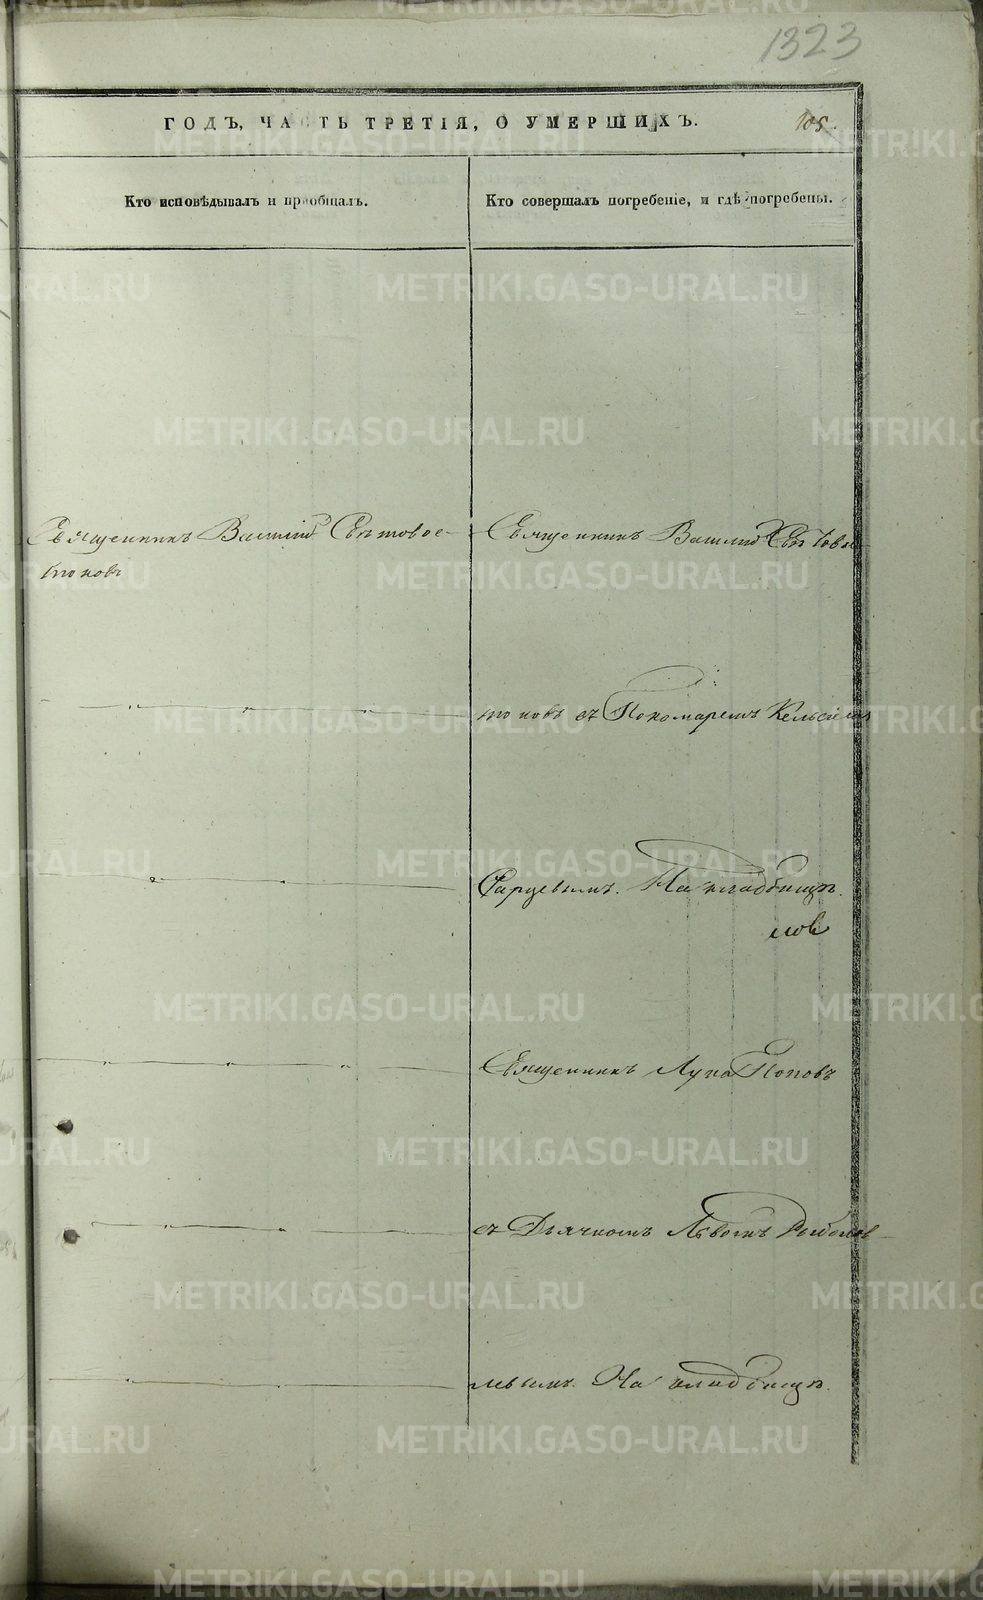 1323
ГОДЪ, ЧАСТЬ ТРЕТІЯ, О УМЕРШИХЪ.
105.
Кто исповѣдывалъ и пріобщалъ.
Кто совершалъ погребеніе, и гдѣ погребены.
Священникъ Василій Свѣтовос-
токовъ
Священникъ Василій Свѣтовос-
токовъ съ Пономаремъ
На кладбищѣ.
Священникъ Лука Поповъ
съ Дьячкомъ Львомъ
На кладбищѣ.
METRIKI.GASO-URAL.RU